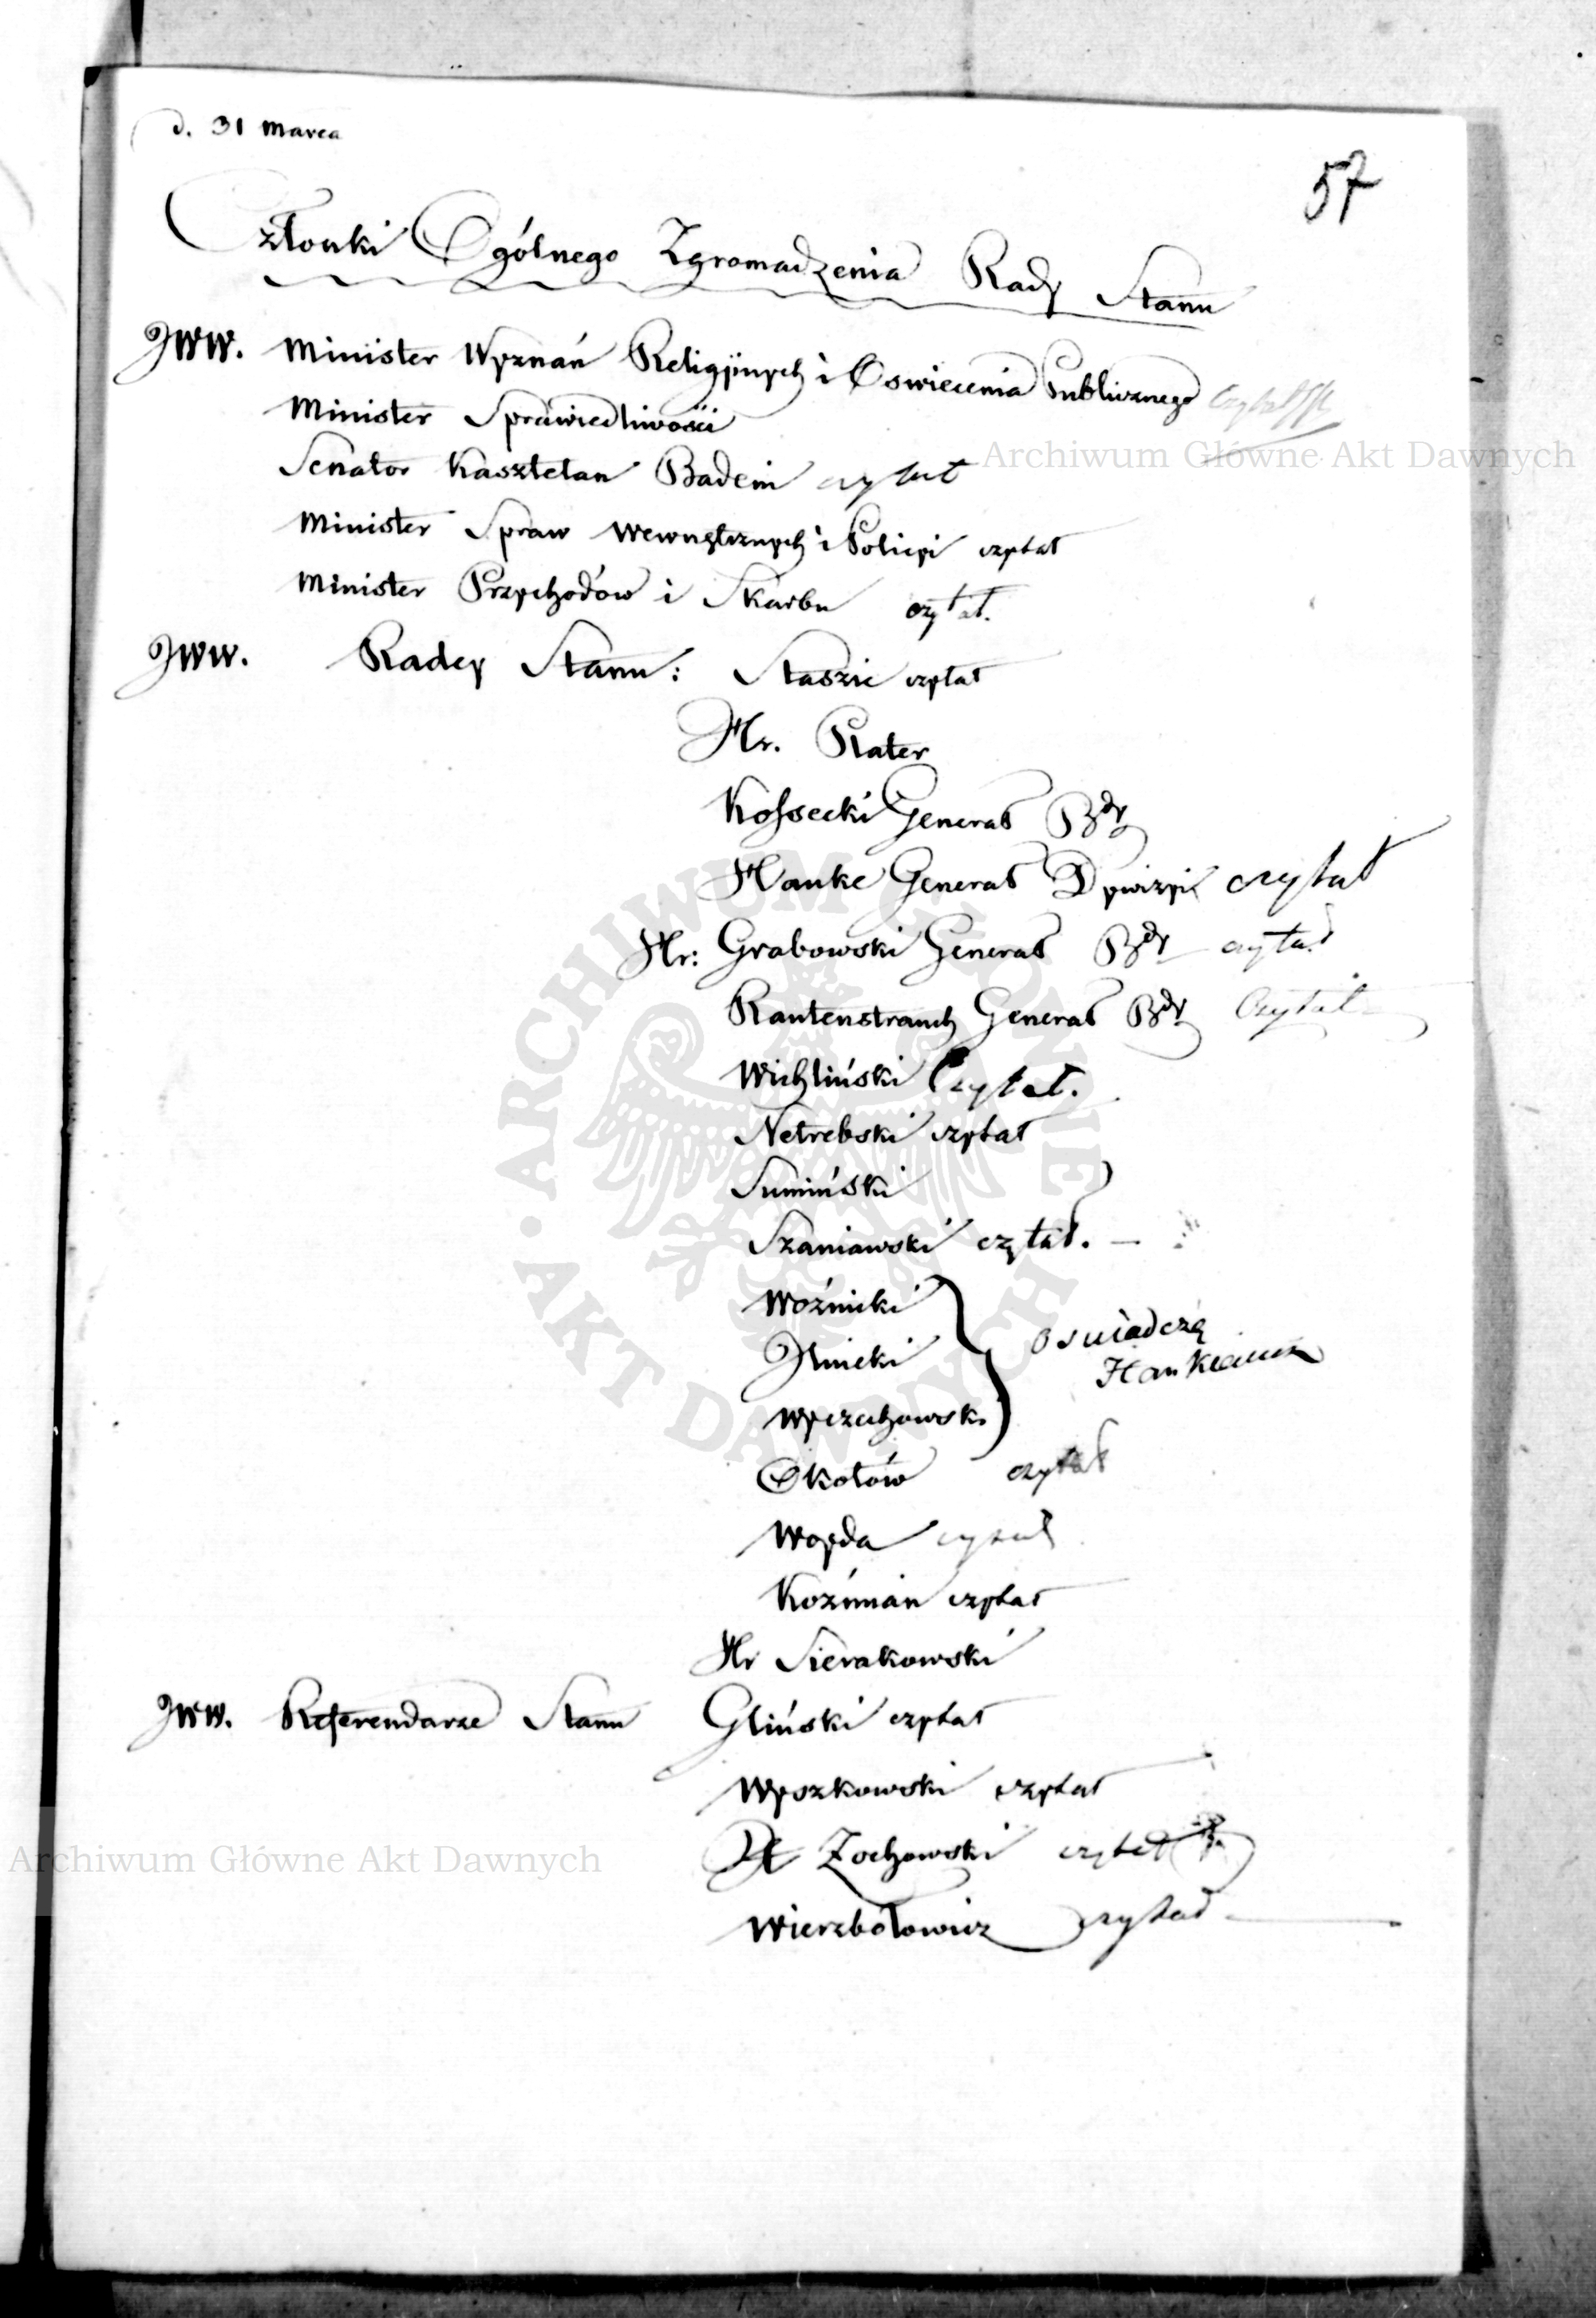 d. 31 Marca
57
Członki Ogólnego Zgromadzenia Rady Stanu
JWW. Minister Wyznań Religijnych i Oswiecenia Publicznego czytał
Minister Sprawiedliwości
Archiwum Główne Akt Dawnych
Senator Kasztelan Badeni czytał
Minister Spraw Wewnętrznych i Policyi czytał
Minister Przychodów i Skarbu czytał.
JWW. Radcy Stanu: Staszic czytał
Hr. Plater
Kossecki Generał Bdy
Hauke Generał Dywizyi czytał
Hr: Grabowski Generał Bdy czytał
Rautenstrauch Generał Bdy Czytał
Wichliński Czytał.
Netrebski czytał
Sumiński
Szaniawski czytał. —
Woźnicki
Jlnicki
Wyczechowski
oswiadczą
Hankiewicz
Okołów czytał
Woyda czytał
Kozmian czytał
Hr Sierakowski
JWW. Referendarze Stanu Gliński czytał
Wyszkowski czytał
Zochowski czytał
Wierzbołowicz czytał
ARCHIWUM GŁÓWNE • AKT DAWNYCH •
Archiwum Główne Akt Dawnych